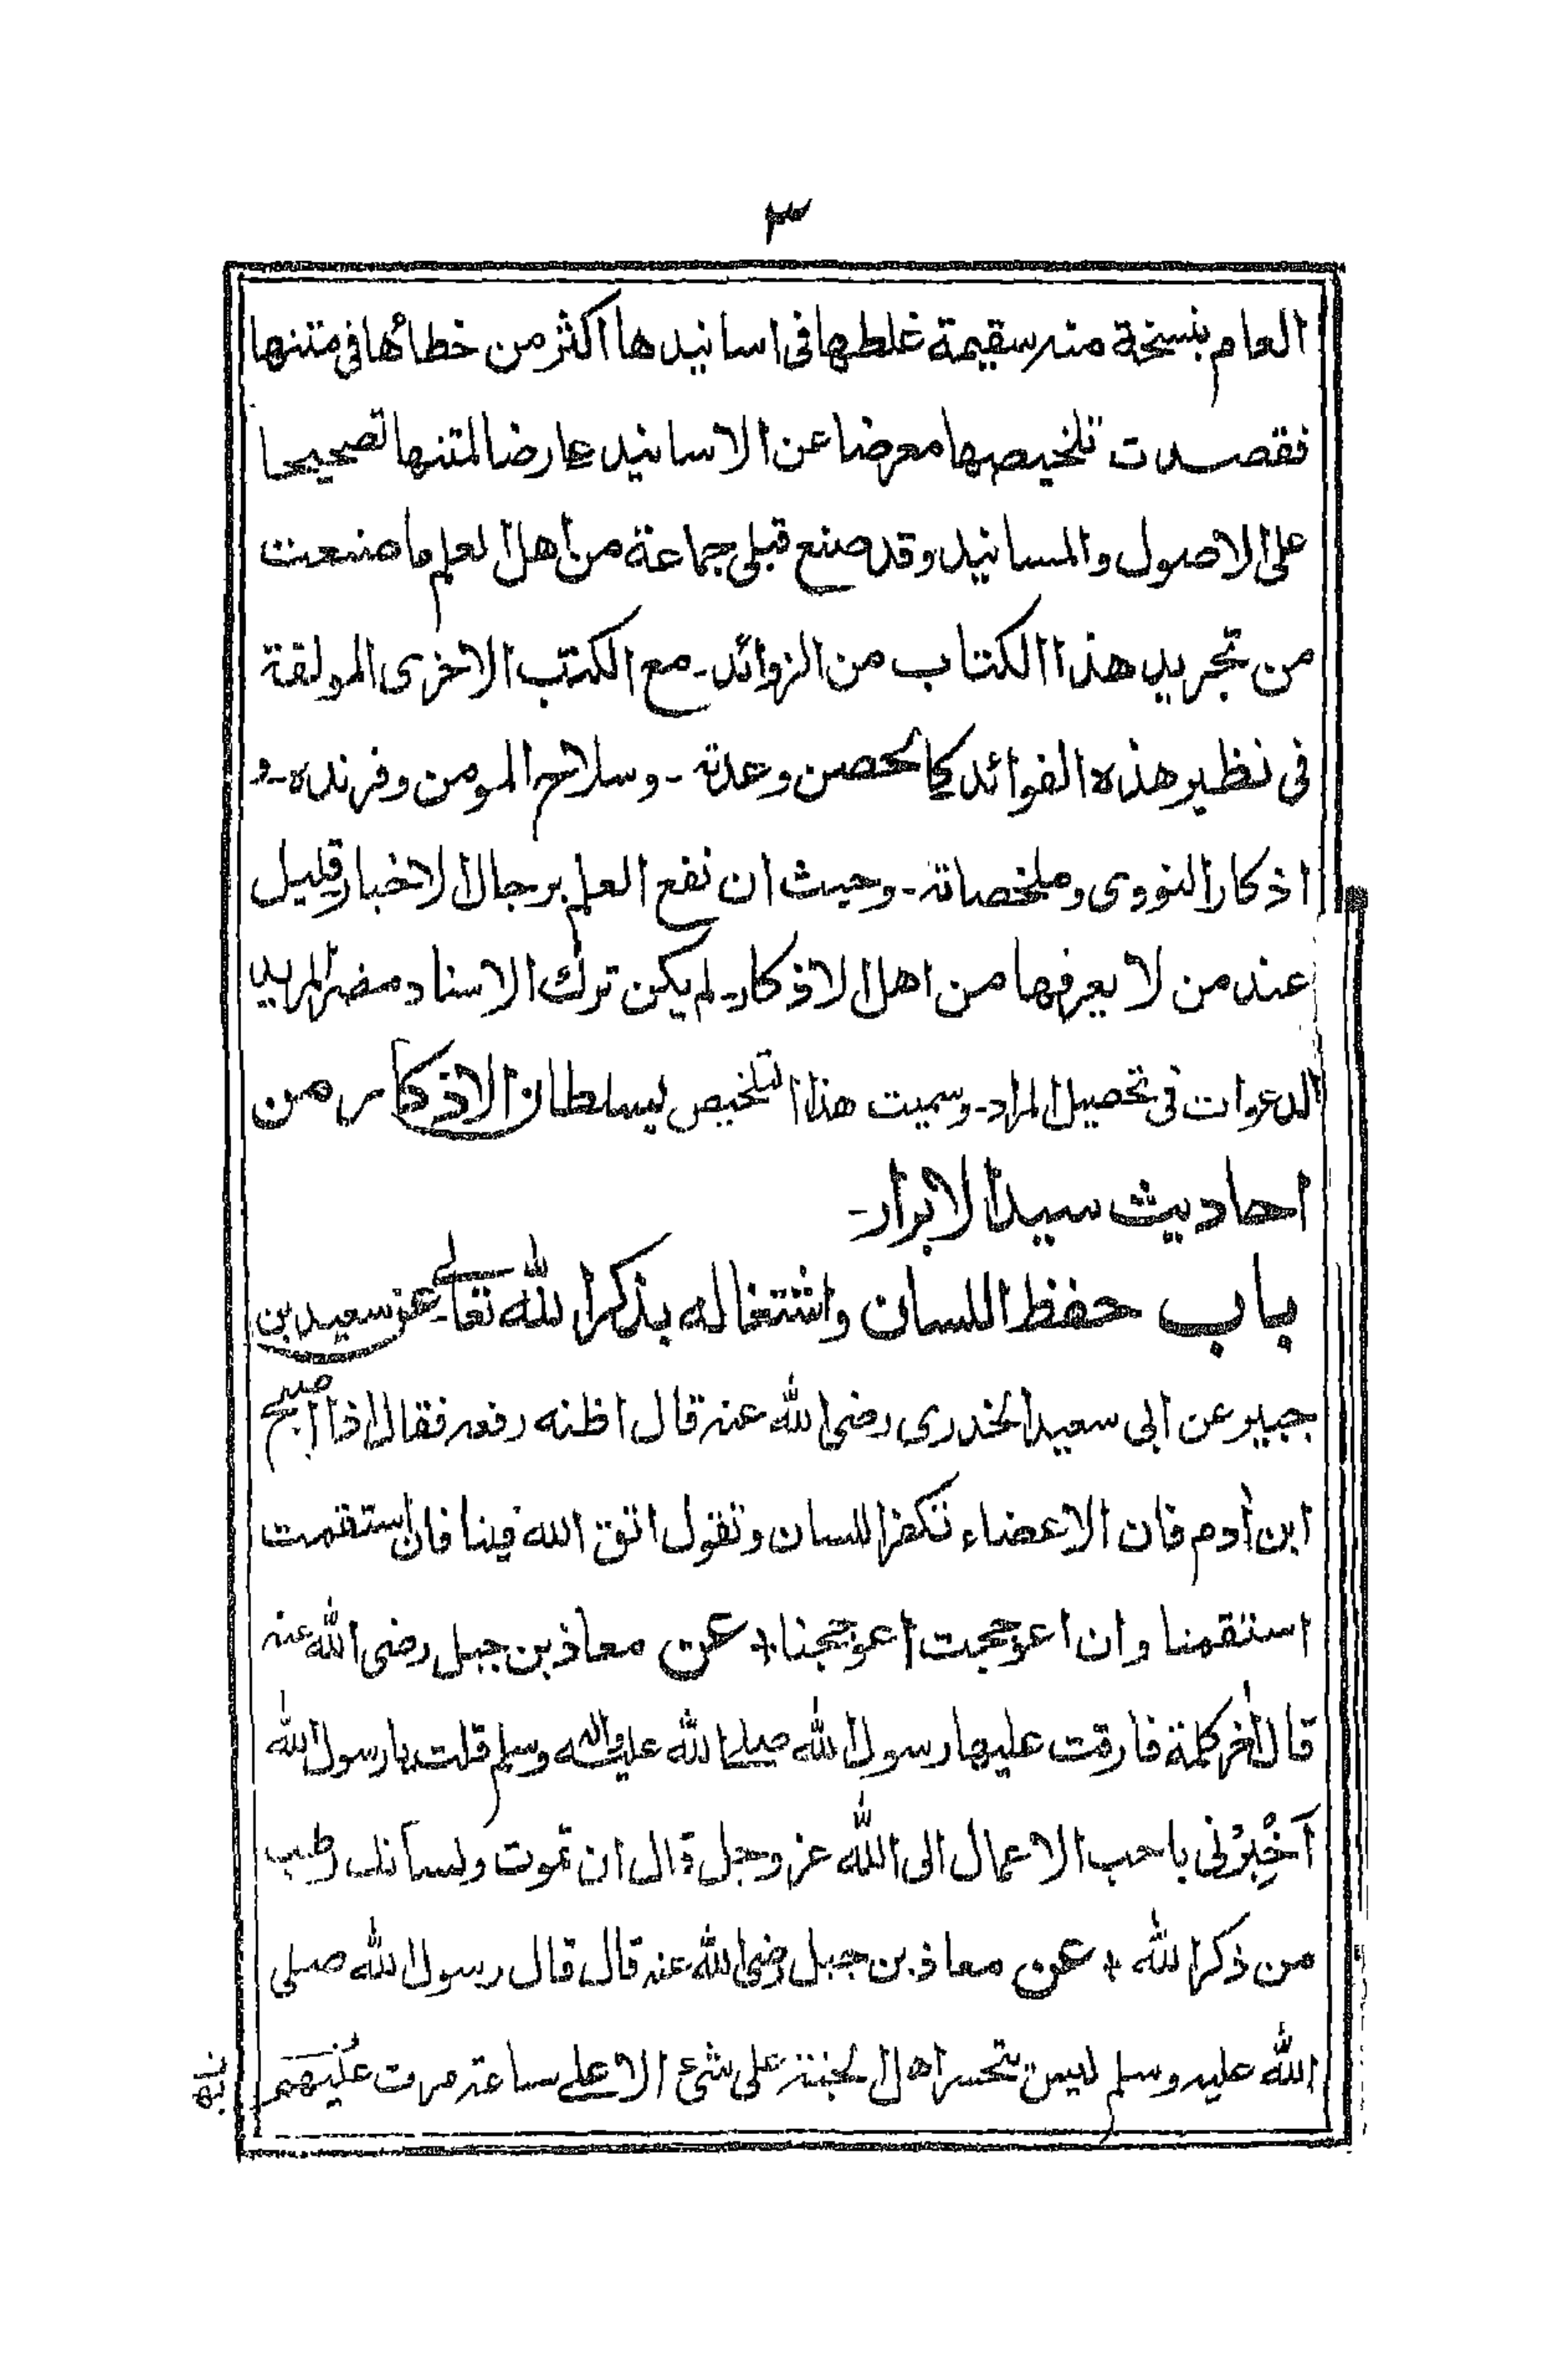 ٣
العام بنسخة منه سقيمة غلطها فى اسانيدها اكثر من خطائها فى متنها
فقصدت تلخيصها معرضا عن الاسانيد عارضا لمتنها تصحيحا
على الاصول والمسانيد وقد صنع قبلى جماعة من اهل العلم ما صنعت
من تجريد هذا الكتاب من الزوائد ـ مع الكتب الاخرى المولفة
فى نظير هذه الفوائد كالحصن وعدته ـ وسلاح المومن وفرنده ـ و
اذكار النووى وملخصاته ـ وحيث ان نفع العلم برجال الاخبار قليل
عند من لا يعرفها من اهل الاذكار ـ لم يكن ترك الاسناد مضر المريد
الدعوات فى تحصيل المراد ـ وسميت هذا التلخيص بسلطان الاذكار من
احاديث سيد الابرار ـ
باب حفظ اللسان واشتغاله بذكر الله تعالى عن سعيد بن
جبير عن ابى سعيد الخدرى رضى الله عنه قال اظنه رفعه فقال اذا اصبح
ابن أدم فان الاعضاء تكفر اللسان وتقول اتق الله فينا فان استقمت
استقمنا وان اعوججت اعوججنا + عن معاذ بن جبل رضى الله عنه
قال أخر كلمة فارقت عليها رسول الله صلى الله عليه واله وسلم قلت يا رسول الله
اَخْبِرْنى باحب الاعمال الى الله عز وجل قال ان تموت ولسانك رطب
من ذكر الله + عن معاذ بن جبل رضى الله عنه قال قال رسول الله صلى
الله عليه وسلم ليس يتحسر اهل الجنة على شئ الا على ساعة مرت عليهم